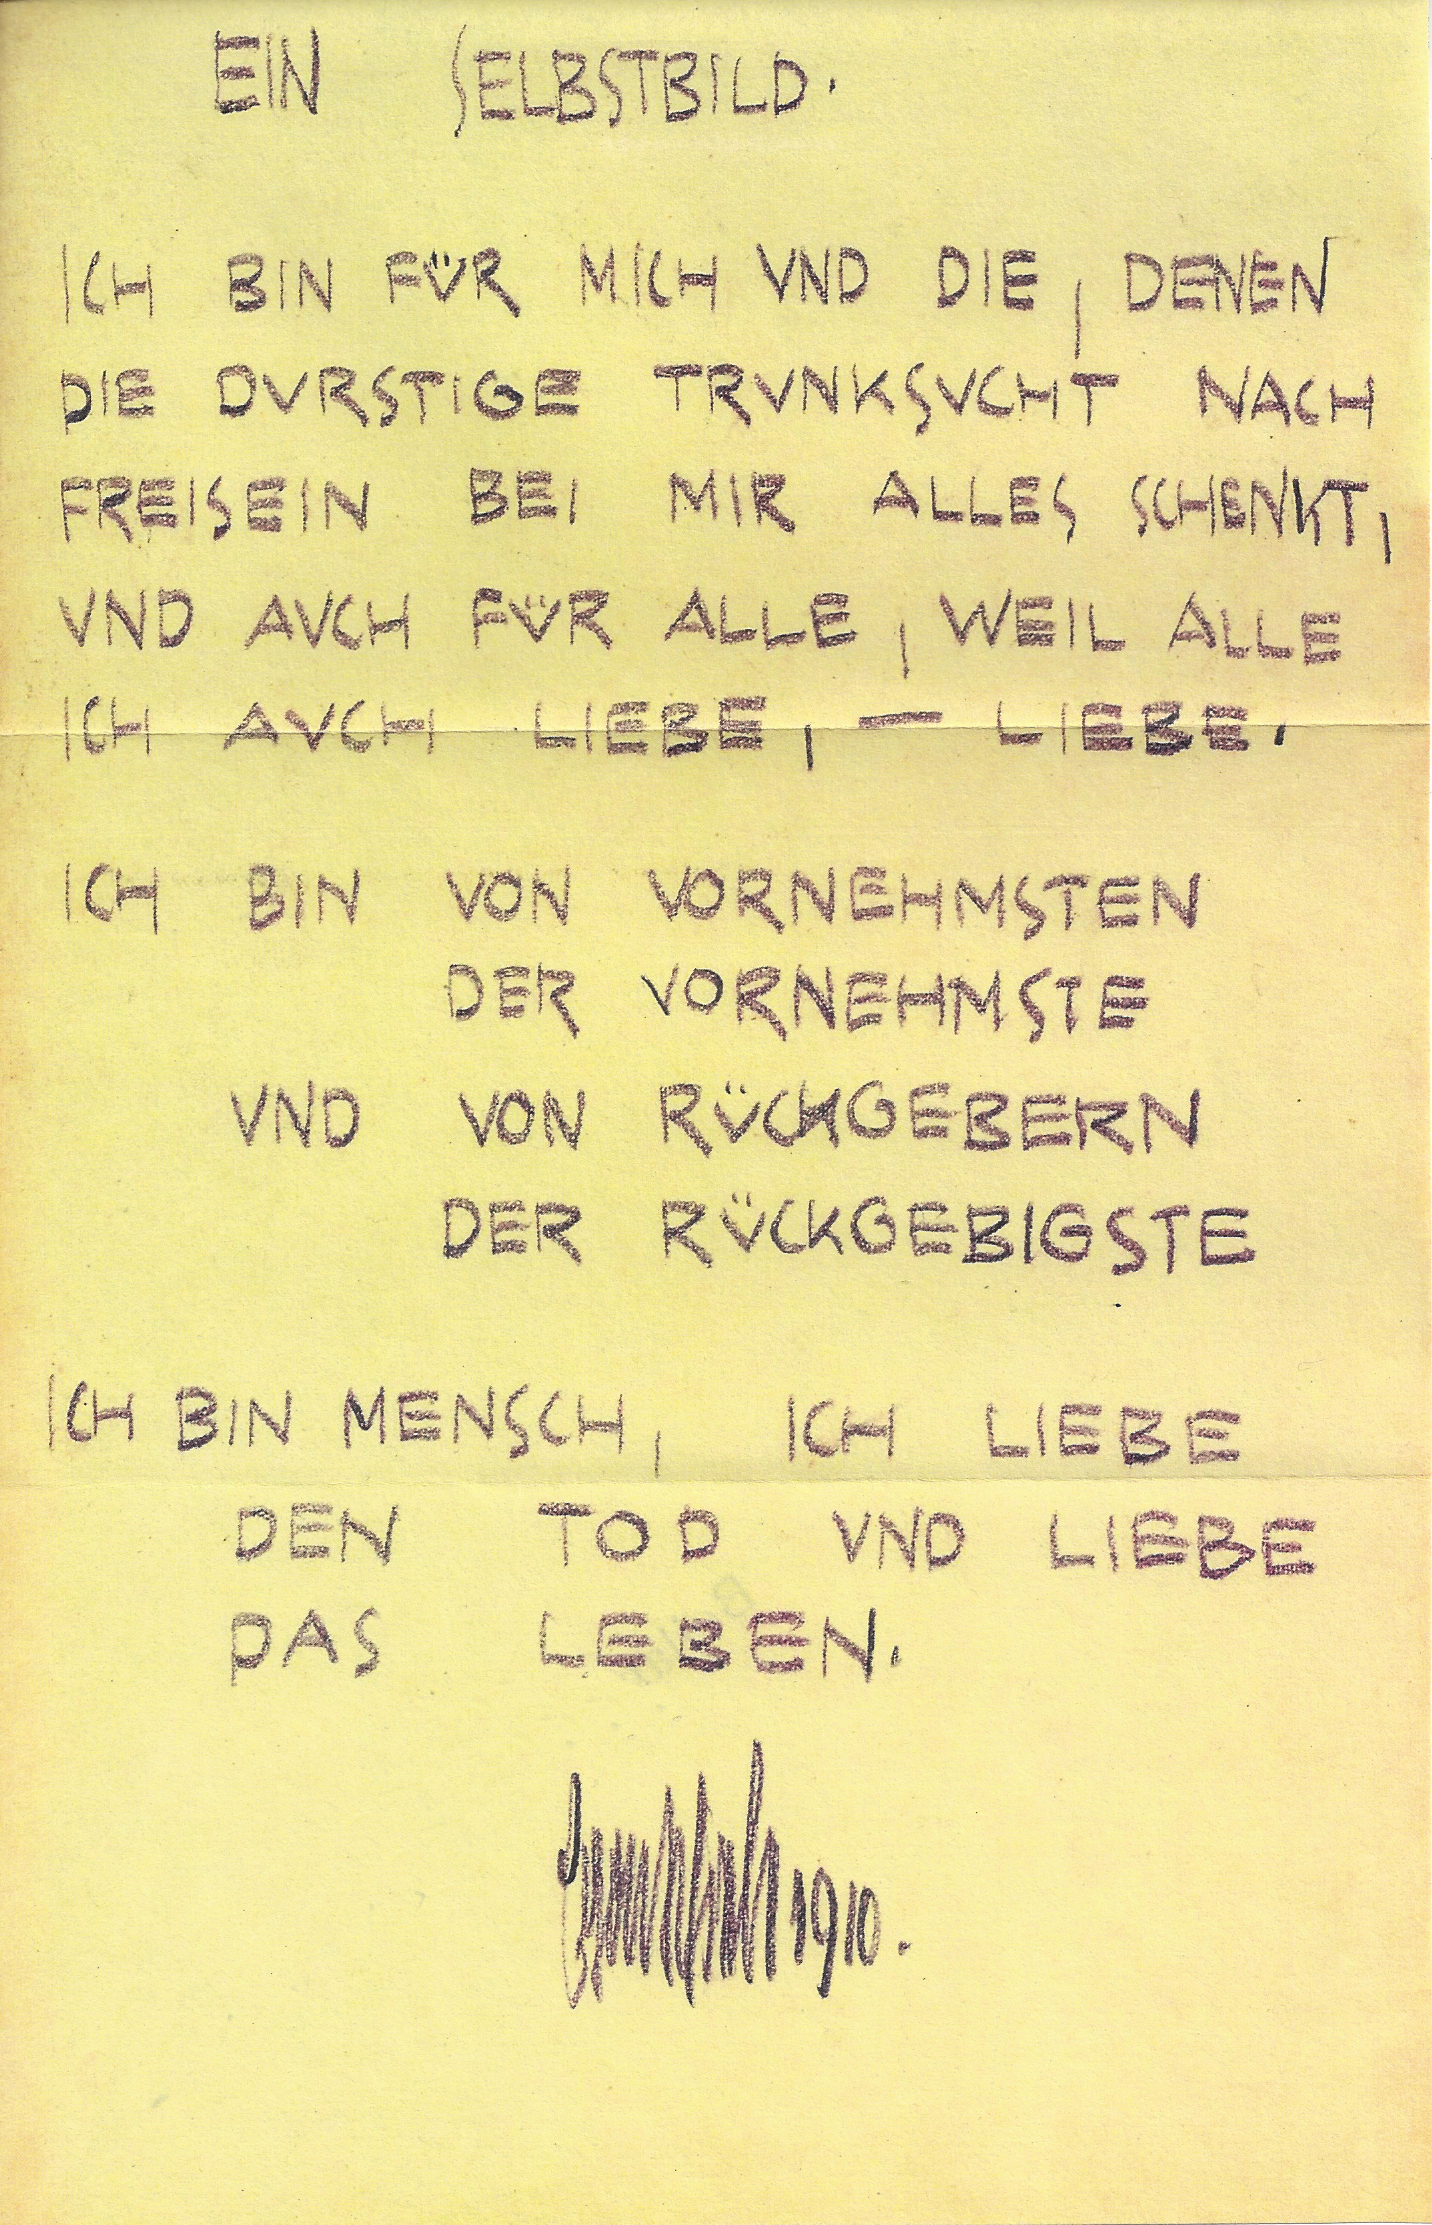 EIN SELBSTBILD.
ICH BIN FÜR MICH VND DIE, DENEN
DIE DVRSTIGE TRVNKSVCHT NACH
FREISEIN BEI MIR ALLES SCHENKT,
VND AVCH FV̈R ALLE, WEIL ALLE
ICH AVCH LIEBE, — LIEBE.
ICH BIN VON VORNEHMSTEN
DER VORNEHMSTE
VND VON RV̈CKGEBERN
DER RV̈CKGEBIGSTE
ICH BIN MENSCH, ICH LIEBE
DEN TOD VND LIEBE
DAS LEBEN.
1910.